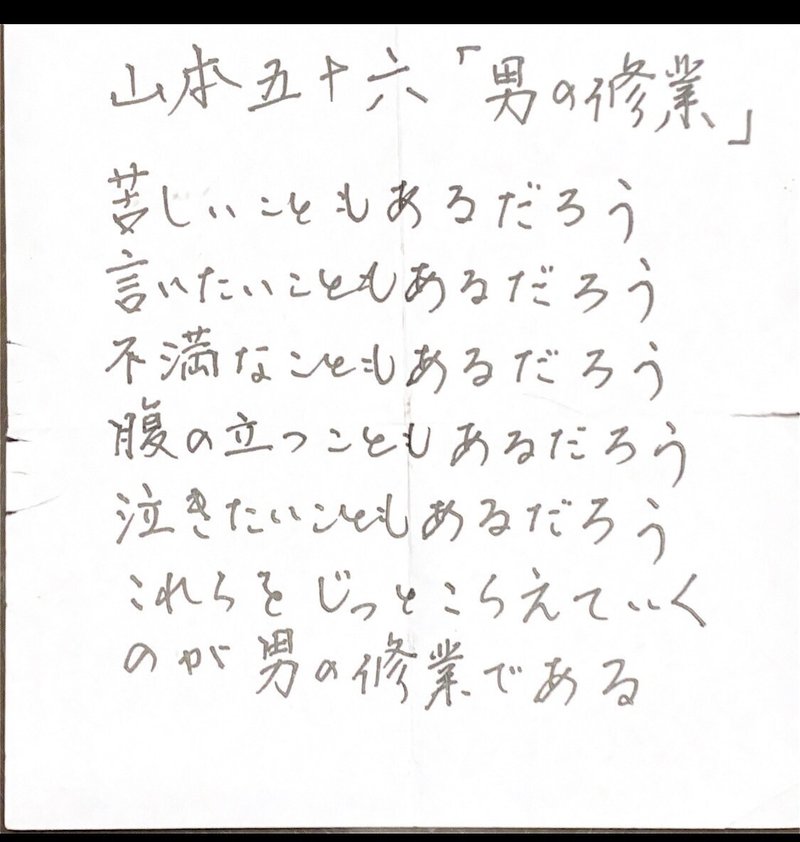 山本五十六「男の修業」
苦しいこともあるだろう
言いたいこともあるだろう
不満なこともあるだろう
腹の立つこともあるだろう
泣きたいこともあるだろう
これらをじっとこらえていく
のが男の修業である